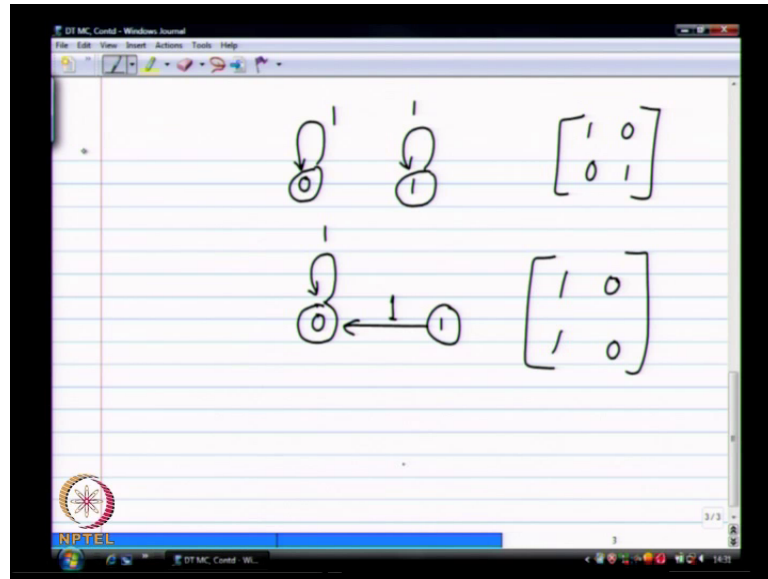 DT MC, Contd - Windows Journal
File Edit View Insert Actions Tools Help
1 1
0 1
1 0
0 1
1
0 1 1
1 0
1 0
3/3
3
NPTEL
DT MC, Contd - Wi...
14:31